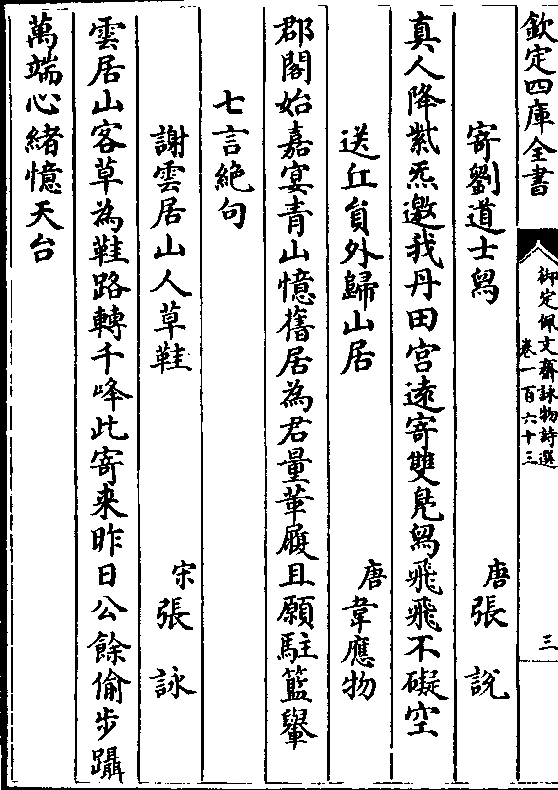 欽定四庫全書
御定佩文齋詠物詩選
卷一百六十三
三
寄劉道士舄
唐張説
真人降紫炁邀我丹田宮逺寄雙鳬舄飛飛不礙空
送丘員外歸山居
唐韋應物
郡閣始嘉宴青山憶舊居為君量革履且願駐籃轝
七言絶句
謝雲居山人草鞋
宋張詠
雲居山客草為鞋路轉千峰此寄来昨日公餘偷步躡
萬端心緒憶天台